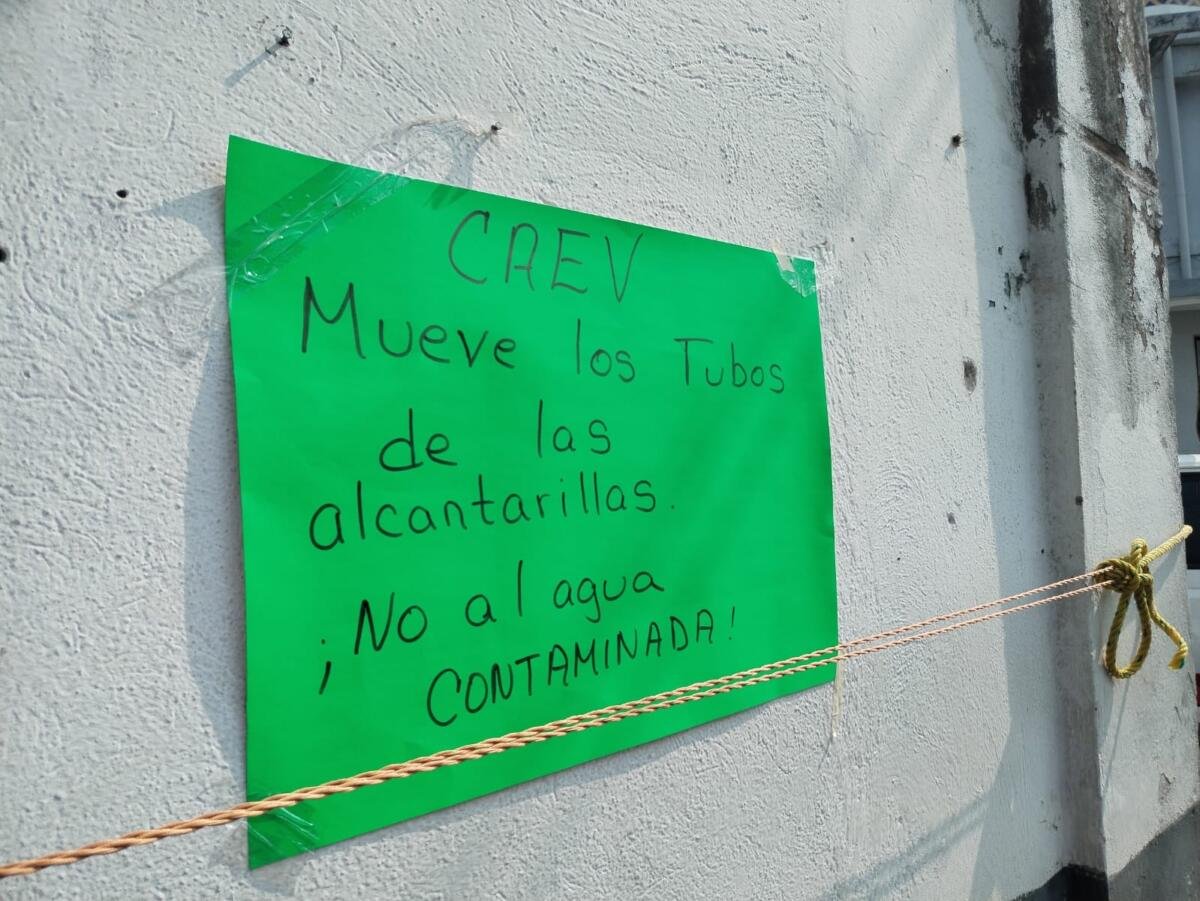 CAEV
Mueve los Tubos
de las
alcantarillas.
¡No al agua
CONTAMINADA!